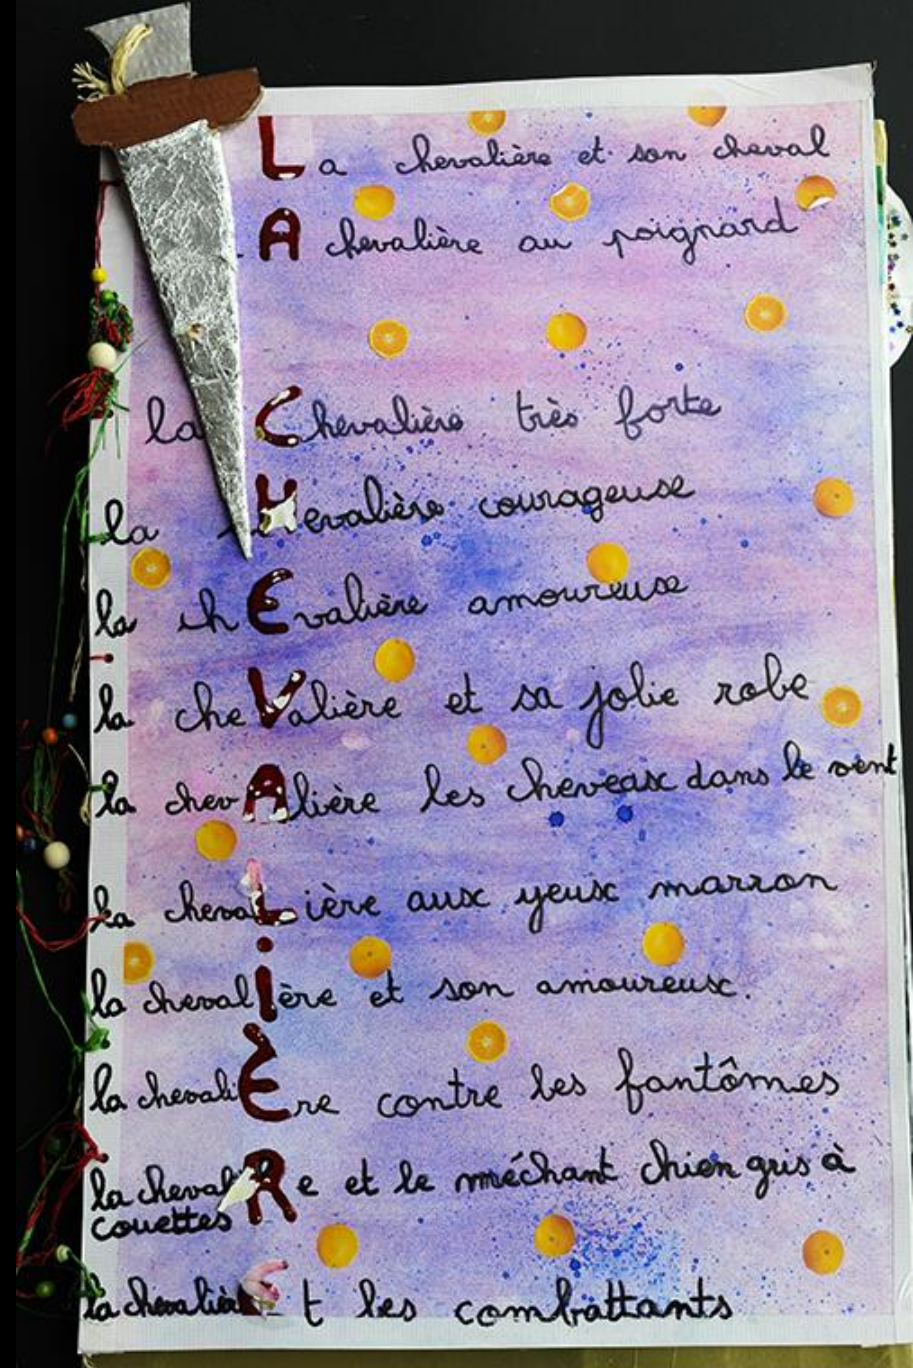 La chevalière et son cheval
A chevalière au poignard
la Chevalière très forte
la cHevalière courageuse
la chEvalière amoureuse
la cheValière et sa jolie robe
la chevAlière les cheveux dans le vent
la chevaLière aux yeux marron
la chevalière et son amoureux.
la chevaliÈre contre les fantômes
la chevalièRe et le méchant chien gris à
couettes
la chevalièrE t les combattants